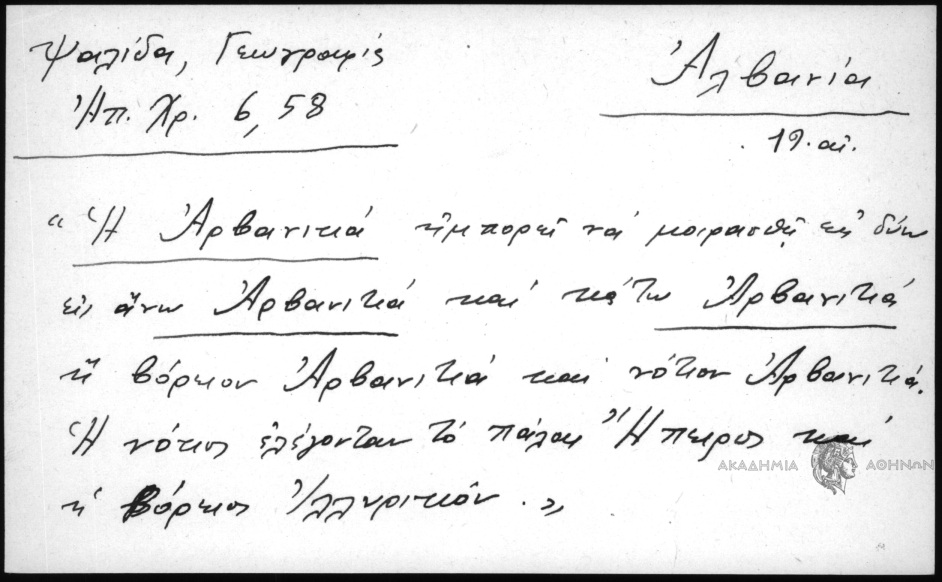 Ψαλίδα, Γεωγραφία
Ἠπ. Χρ. 6, 58
Ἀλβανία
19. αἰ.
"Ἡ Ἀρβανιτιά ἠμπορεῖ νά μοιρασθῇ εἰς δύω
εἰς ἄνω Ἀρβανιτιά καί κάτω Ἀρβανιτιά
ἤ βόρειον Ἀρβανιτιά καί νότιον Ἀρβανιτιά.
Ἡ νότιος ἐλέγονταν τό πάλαι Ἤπειρος καί
ἡ βόρειος Ἰλλυρικόν."
ΑΚΑΔΗΜΙΑ ΑΘΗΝΩΝ